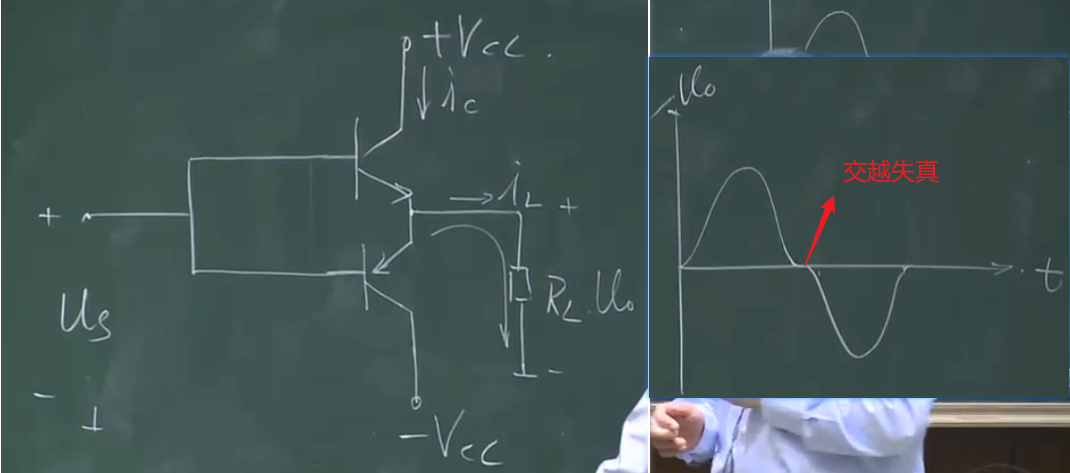 +Vcc.
ic
+
iL
+
Us
RL.Uo
-
-
-Vcc
Uo
交越失真
t